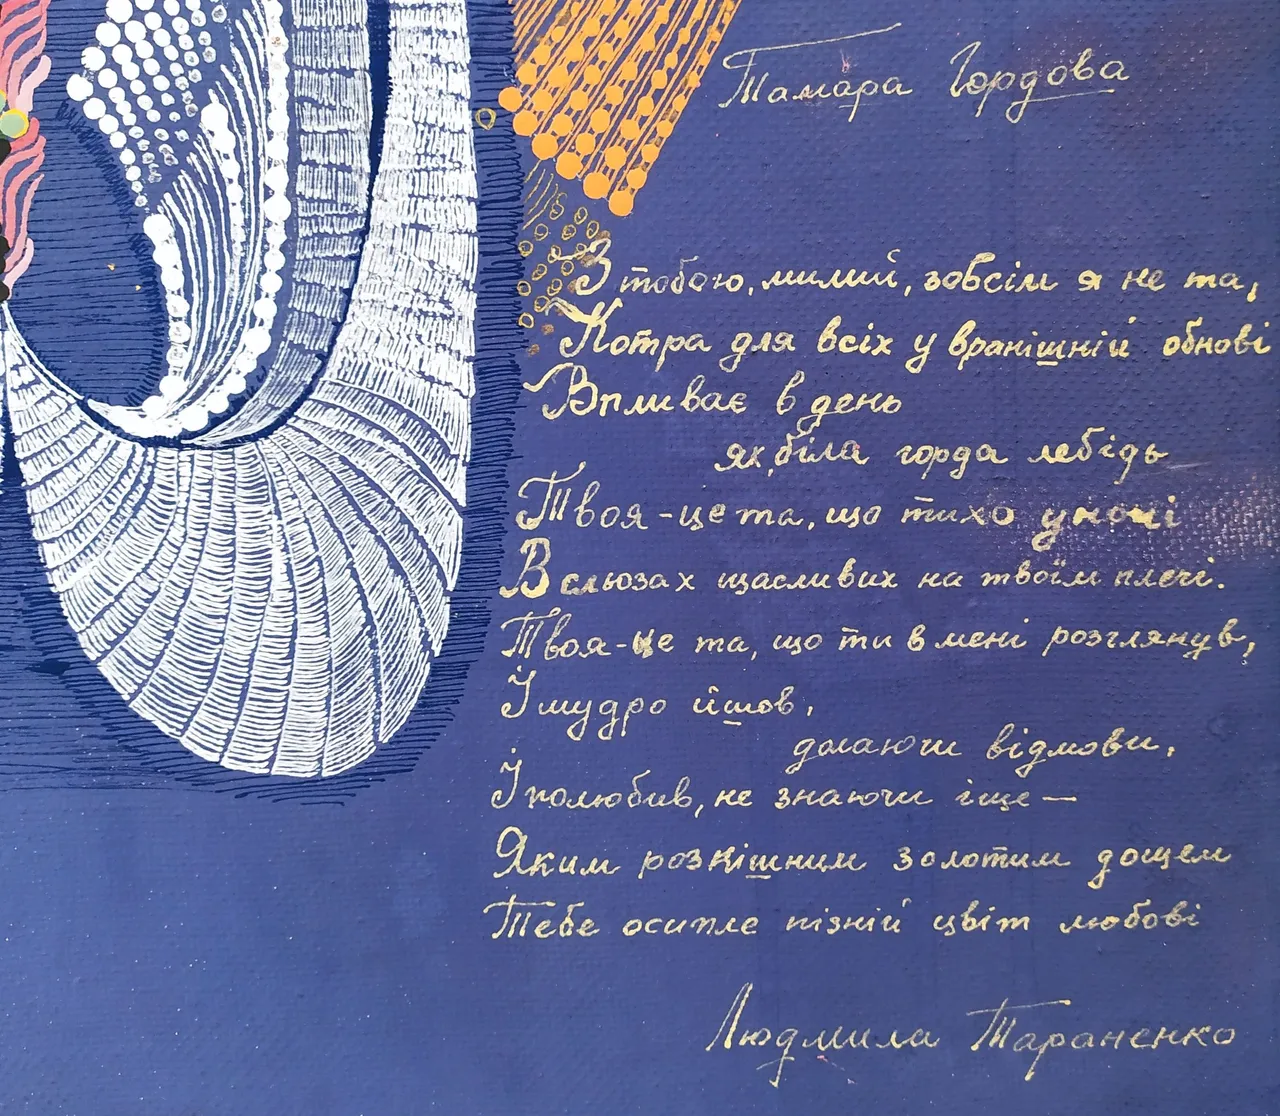 Тамара Гордова
З тобою, милий, зовсім я не та,
Котра для всіх у вранішній обнові
Впливає в день
як біла горда лебідь
Твоя - це та, що тихо уночі
В сльозах щасливих на твоїм плечі.
Твоя - це та, що ти в мені розглянув,
І мудро йшов,
долаючи відмови,
І полюбив, не знаючи іще —
Яким розкішним золотим дощем
Тебе осипле пізній цвіт любові
Людмила Тараненко